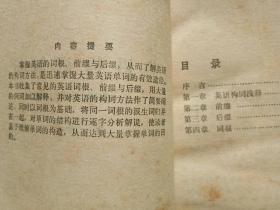 内容提要
掌握英语的词根、前缀与后缀，从而了解英语
的构词方法，是迅速掌握大量英语单词的有效途径。
本书收集了常见的英语词根、前缀与后缀，用大量
的例词加以解释，并对英语的构词方法作了简要叙
述，同时以词根为基础，将同一词根的派生词归
在一起，对单词的结构进行逐字分析解说，使读者
易于理解单词的构造，从而达到大量掌握单词的目
的。
目录
序言
第一章 英语构词浅释
第二章 前缀
第三章 后缀
第四章 词根